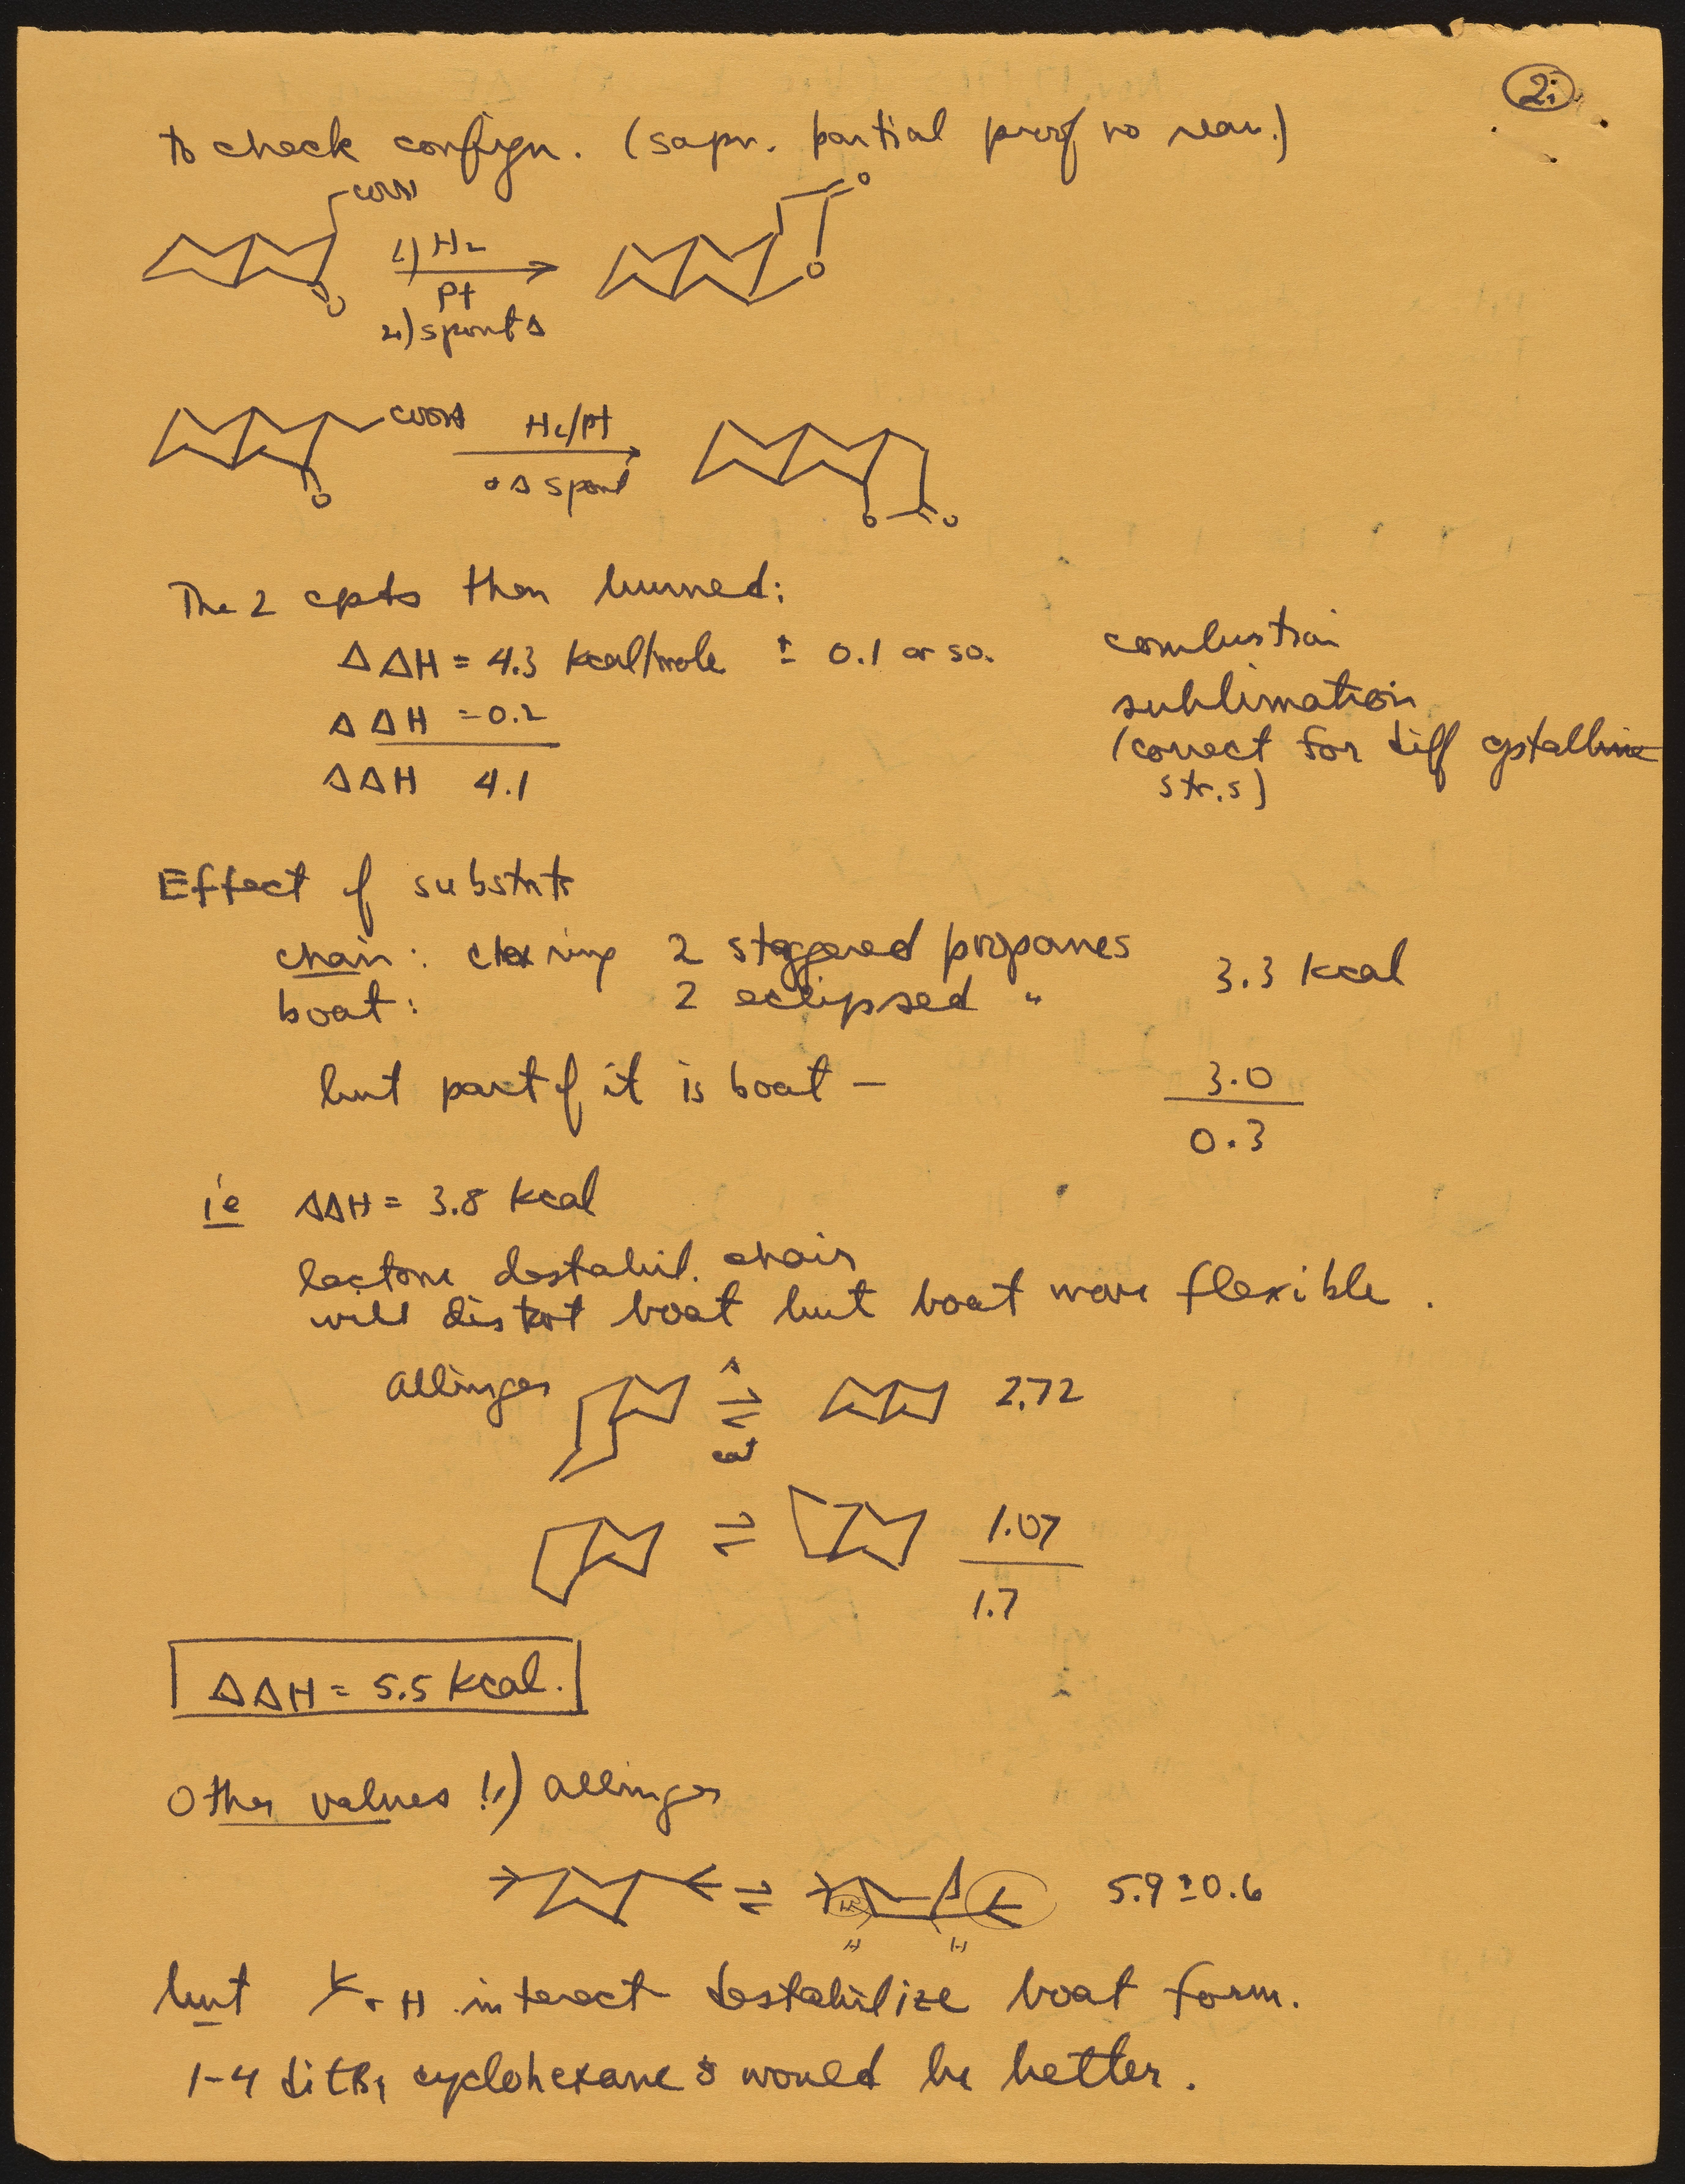 2:
to check confign. (sapn. partial proof no rearr.)
COOH
1) H2
Pt
2) spont Δ
O
O
O
COOH
H2/Pt
Δ spont
O
O
O
The 2 cpds then burned:
ΔΔH = 4.3 kcal/mole ± 0.1 or so. combustion
ΔΔH = 0.2 sublimation
(correct for diff cystalline
str.s)
ΔΔH 4.1
Effect of substnts
chair: ring 2 staggered propanes
boat: 2 eclipsed " 3.3 kcal
but part of it is boat — 3.0
0.3
ie ΔΔH = 3.8 kcal
lactone destabil. chair
will distort boat but boat more flexible.
Allinger Δ
⇌
cat
2.72
⇌ 1.07
1.7
ΔΔH = 5.5 kcal.
Other values 1,) Allinger
⇌ H H H 5.9 ± 0.6
but H interact destabilize boat form.
1-4 ditBu cyclohexanes would be better.